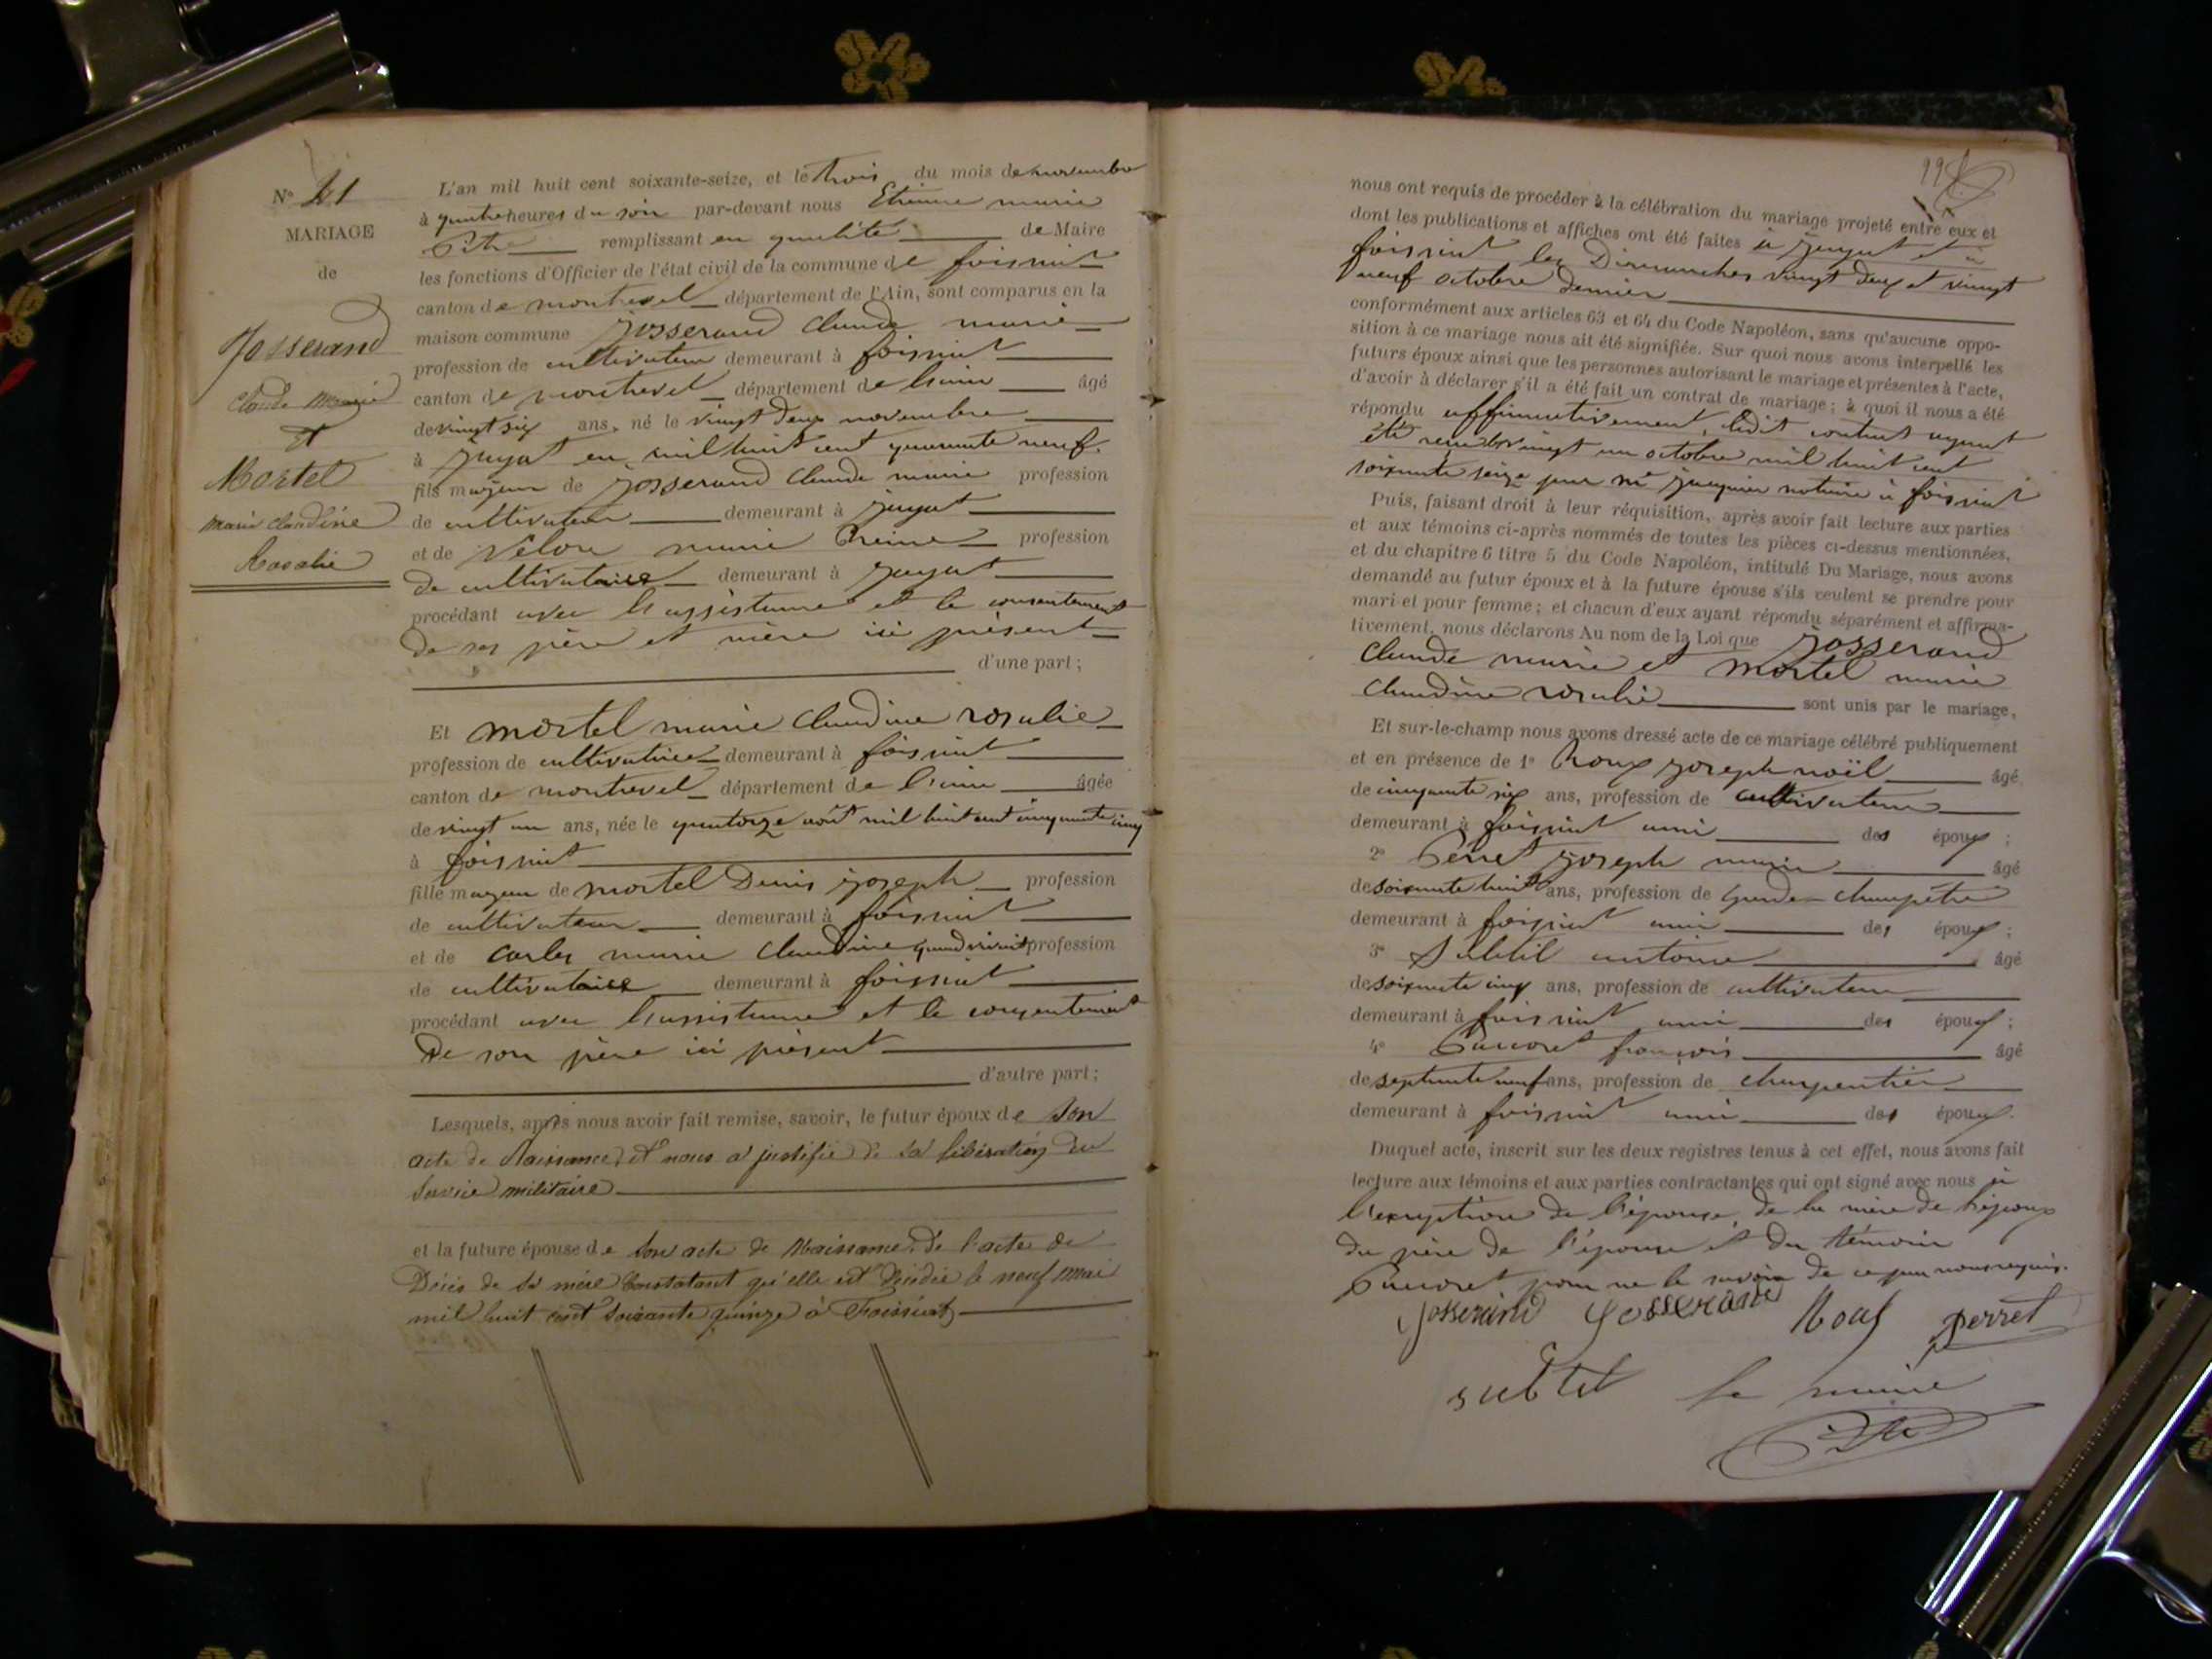 N° 41
MARIAGE
de
Josserand
Claude Marie
et
Mortel
Marie Claudine
Rosalie
L'an mil huit cent soixante-seize, et le trois du mois de novembre
à quatre heures du soir par-devant nous Etienne marie
remplissant en qualité de Maire
les fonctions d'Officier de l'état civil de la commune de foissiat
canton de montrevel département de l'Ain, sont comparus en la
maison commune Josserand Claude marie
profession de cultivateur demeurant à foissiat
canton de montrevel département de l'ain âgé
de vingt six ans, né le vingt deux novembre
à Jayat en mil huit cent quarante neuf.
fils majeur de Josserand Claude marie profession
de cultivateur demeurant à Jayat
et de Velon marie Reine profession
de cultivatrice demeurant à Jayat
procédant avec l'assistance et le consentement
de ses père et mère ici présent
d'une part ;
Et mortel marie Claudine rosalie
profession de cultivatrice demeurant à foissiat
canton de montrevel département de l'ain âgée
de vingt un ans, née le quatorze août mil huit cent cinquante cinq
à foissiat
fille majeur de mortel Denis joseph profession
de cultivateur demeurant à foissiat
et de Carles marie Claudine quand vivait profession
de cultivatrice demeurant à foissiat
procédant avec l'assistance et le consentement
de son père ici présent
d'autre part ;
Lesquels, après nous avoir fait remise, savoir, le futur époux de son
acte de Naissance, et nous a justifié de sa libération du
Service militaire
et la future épouse de son acte de Naissance, de l'acte de
Décès de sa mère Constatant qu'elle est décédée le neuf mai
mil huit cent soixante quinze à Foissiat
99
nous ont requis de procéder à la célébration du mariage projeté entre eux et
dont les publications et affiches ont été faites à Jayat et à
foissiat les Dimanches vingt deux et vingt
neuf octobre dernier
conformément aux articles 63 et 64 du Code Napoléon, sans qu'aucune oppo-
sition à ce mariage nous ait été signifiée. Sur quoi nous avons interpellé les
futurs époux ainsi que les personnes autorisant le mariage et présentes à l'acte,
d'avoir à déclarer s'il a été fait un contrat de mariage ; à quoi il nous a été
répondu affirmativement, ledit contrat ayant
été reçu le vingt un octobre mil huit cent
soixante seize par me Jacquier notaire à foissiat
Puis, faisant droit à leur réquisition, après avoir fait lecture aux parties
et aux témoins ci-après nommés de toutes les pièces ci-dessus mentionnées,
et du chapitre 6 titre 5 du Code Napoléon, intitulé Du Mariage, nous avons
demandé au futur époux et à la future épouse s'ils veulent se prendre pour
mari et pour femme ; et chacun d'eux ayant répondu séparément et affirma-
tivement, nous déclarons Au nom de la Loi que Josserand
Claude marie et mortel marie
Claudine rosalie sont unis par le mariage,
Et sur-le-champ nous avons dressé acte de ce mariage célébré publiquement
et en présence de 1° Roux joseph noël âgé
de cinquante six ans, profession de cultivateur
demeurant à foissiat ami des époux ;
2° Perret joseph marie âgé
de soixante huit ans, profession de garde-champêtre
demeurant à foissiat ami des époux ;
3° Subtil antoine âgé
de soixante cinq ans, profession de cultivateur
demeurant à foissiat ami des époux ;
4° Pauvret françois âgé
de septante neuf ans, profession de charpentier
demeurant à foissiat ami des époux.
Duquel acte, inscrit sur les deux registres tenus à cet effet, nous avons fait
lecture aux témoins et aux parties contractantes qui ont signé avec nous à
l'exception de l'épouse, de la mère de l'époux
du père de l'épouse et du témoin
Pauvret pour ne le savoir de ce par nous requis.
Josserand Josserand Roux perret
subtil le maire